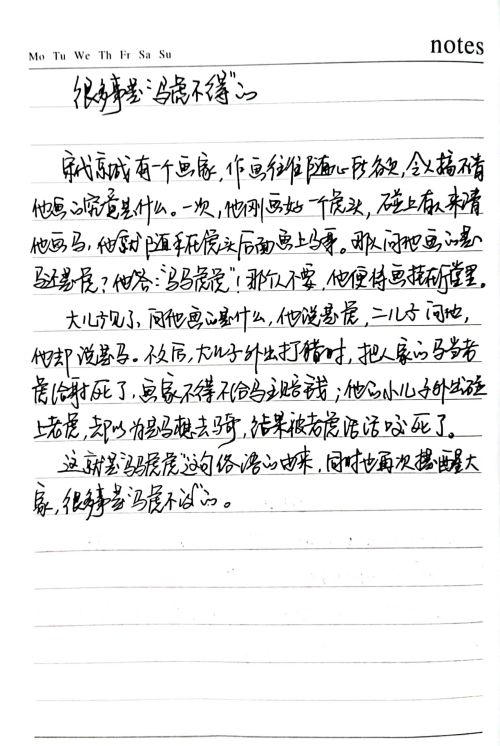 notes
Mo Tu We Th Fr Sa Su
很多事是“马虎不得”的
宋代京城有一个画家，作画往往随心所欲，令人搞不清
他画的究竟是什么。一次，他刚画好一个虎头，碰上有人来请
他画马，他就随手在虎头后面画上马身。那人问他画的是
马还是虎？他答：“马马虎虎”！那人不要，他便将画挂在厅堂里。
大儿子见了，问他画的是什么，他说是虎，二儿子问他，
他却说是马。不久后，大儿子外出打猎时，把人家的马当老
虎给射死了，画家不得不给马主赔钱；他的小儿子外出碰
上老虎，却以为是马想去骑，结果被老虎活活咬死了。
这就是“马马虎虎”这句俗语的由来，同时也再次提醒大
家，很多事是“马虎不得”的。